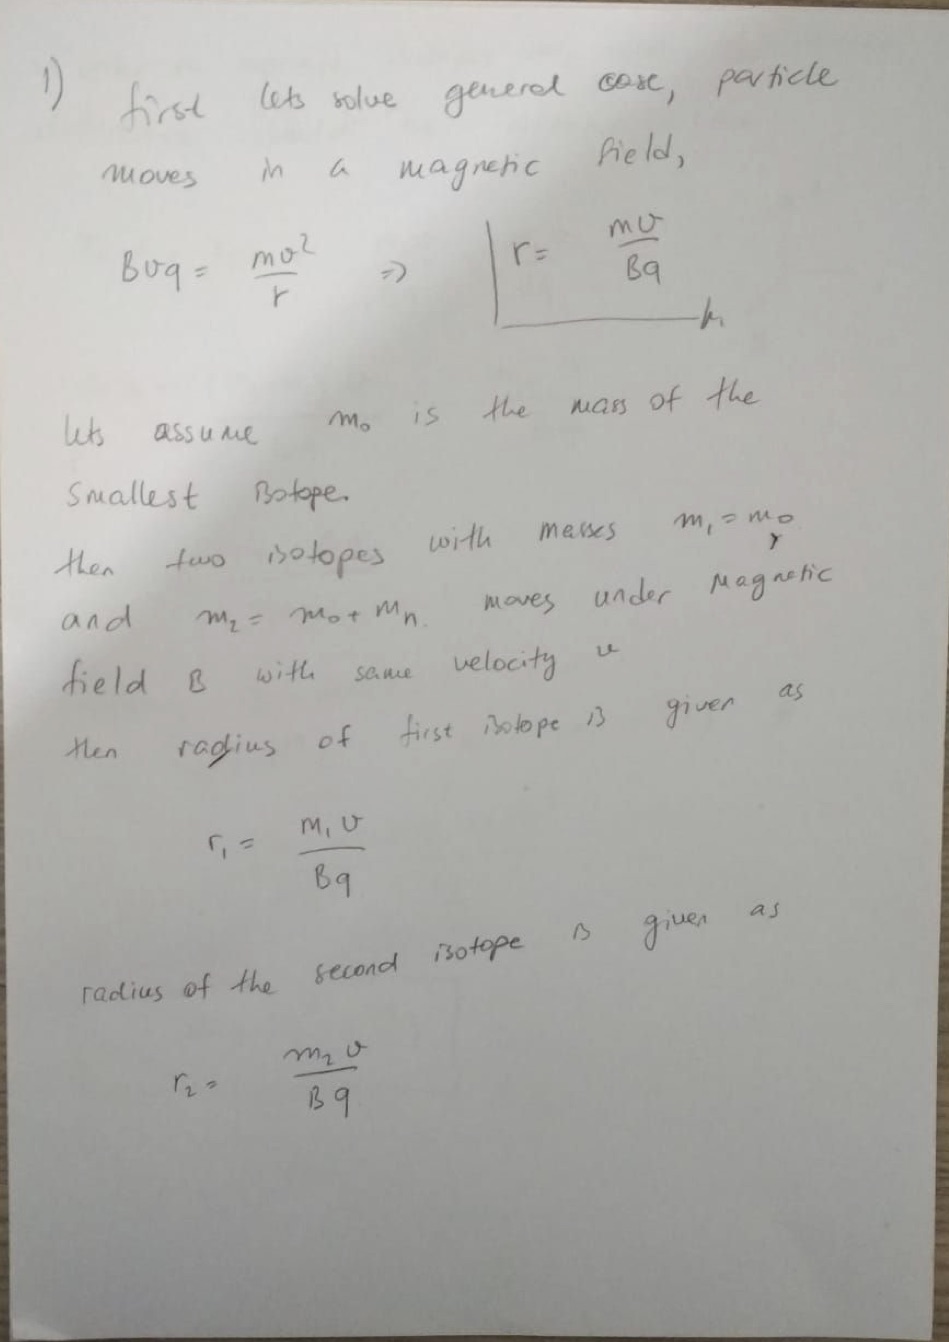 1) first lets solve general case, particle
moves in a magnetic field,
Bvq = mv²/r => r = mv/Bq
lets assume m₀ is the mass of the
smallest isotope.
then two isotopes with masses m₁ = m₀,
and m₂ = m₀ + mₙ. moves under magnetic
field B with same velocity v
then radius of first isotope is given as
r₁ = m₁v/Bq
radius of the second isotope is given as
r₂ = m₂v/Bq